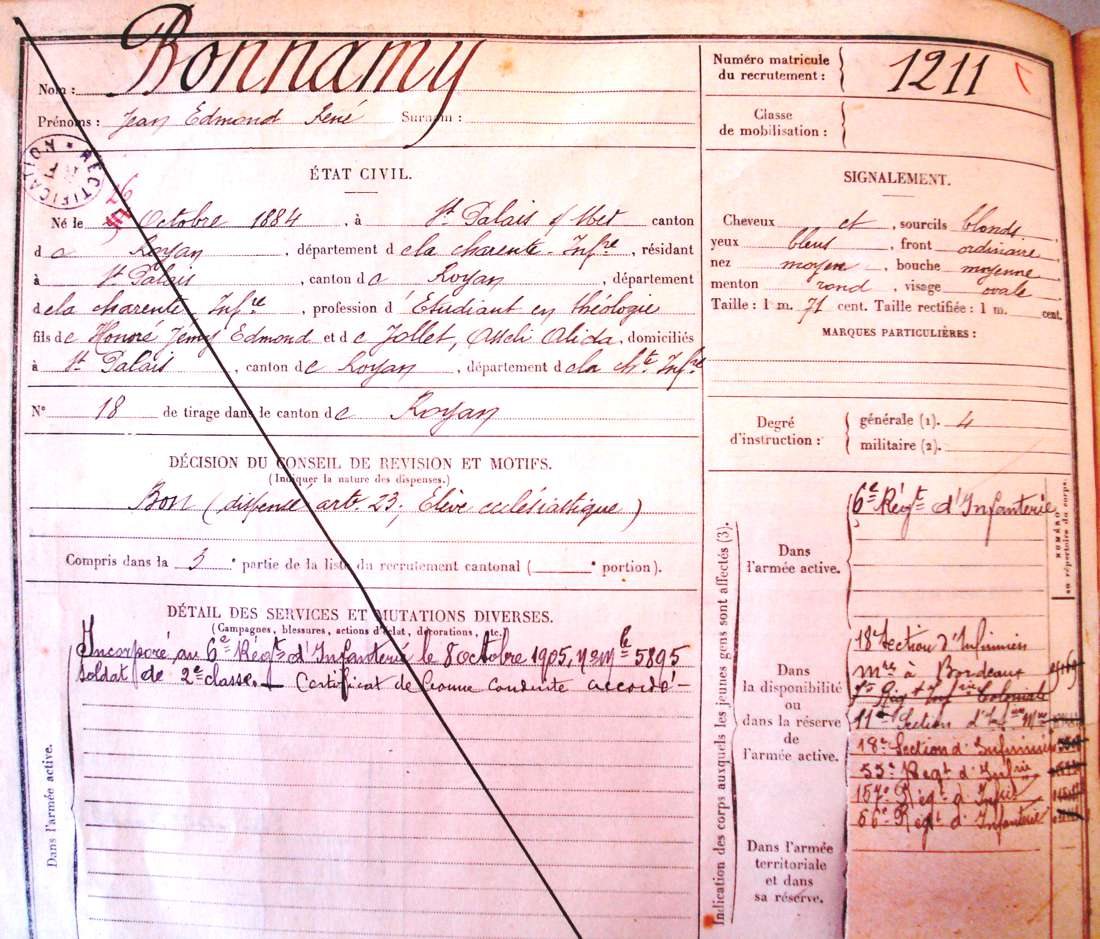 Nom : Bonnamy
Prénoms : Jean Edmond René Surnom :
RECTIFICATION
ÉTAT CIVIL.
Né le Octobre 1884, à St Palais s/ Mer canton
de Royan, département de la Charente-Infre, résidant
à St Palais, canton de Royan, département
de la Charente Infre, profession d'Etudiant en théologie
fils de Honoré Jémy Edmond et de Jollet, Alida, domiciliés
à St Palais, canton de Royan, département de la Chte Infre
N° 18 de tirage dans le canton de Royan
DÉCISION DU CONSEIL DE REVISION ET MOTIFS.
(Indiquer la nature des dispenses.)
Bon (dispensé art. 23; Elève ecclésiastique)
Compris dans la 3 e partie de la liste du recrutement cantonal ( e portion).
DÉTAIL DES SERVICES ET MUTATIONS DIVERSES.
(Campagnes, blessures, actions d'éclat, décorations, etc.)
Incorporé au 6e Régt d'Infanterie le 8 octobre 1905, no mle 5895
soldat de 2e classe. — Certificat de bonne conduite accordé —
Dans l'armée active.
Numéro matricule
du recrutement : 1211
Classe
de mobilisation :
SIGNALEMENT.
Cheveux et, sourcils blonds,
yeux bleus, front ordinaire,
nez moyen, bouche moyenne
menton rond, visage ovale
Taille : 1 m. 71 cent. Taille rectifiée : 1 m. cent.
MARQUES PARTICULIÈRES :
Degré
d'instruction :
générale (1). 4
militaire (2).
Indication des corps auxquels les jeunes gens sont affectés (3).
NUMÉRO
au répertoire du corps.
Dans
l'armée active.
6e Régt d'Infanterie
Dans
la disponibilité
ou
dans la réserve
de
l'armée active.
18e Section d'Infirmiers
mres à Bordeaux
7e Régt Infrie Coloniale
11e Section d'Inf. Mres
18e Section d'Infirmiers
Régt d'Infrie
157e Régt d'Infie
66e Régt d'Infanterie
Dans l'armée
territoriale
et dans
sa réserve.